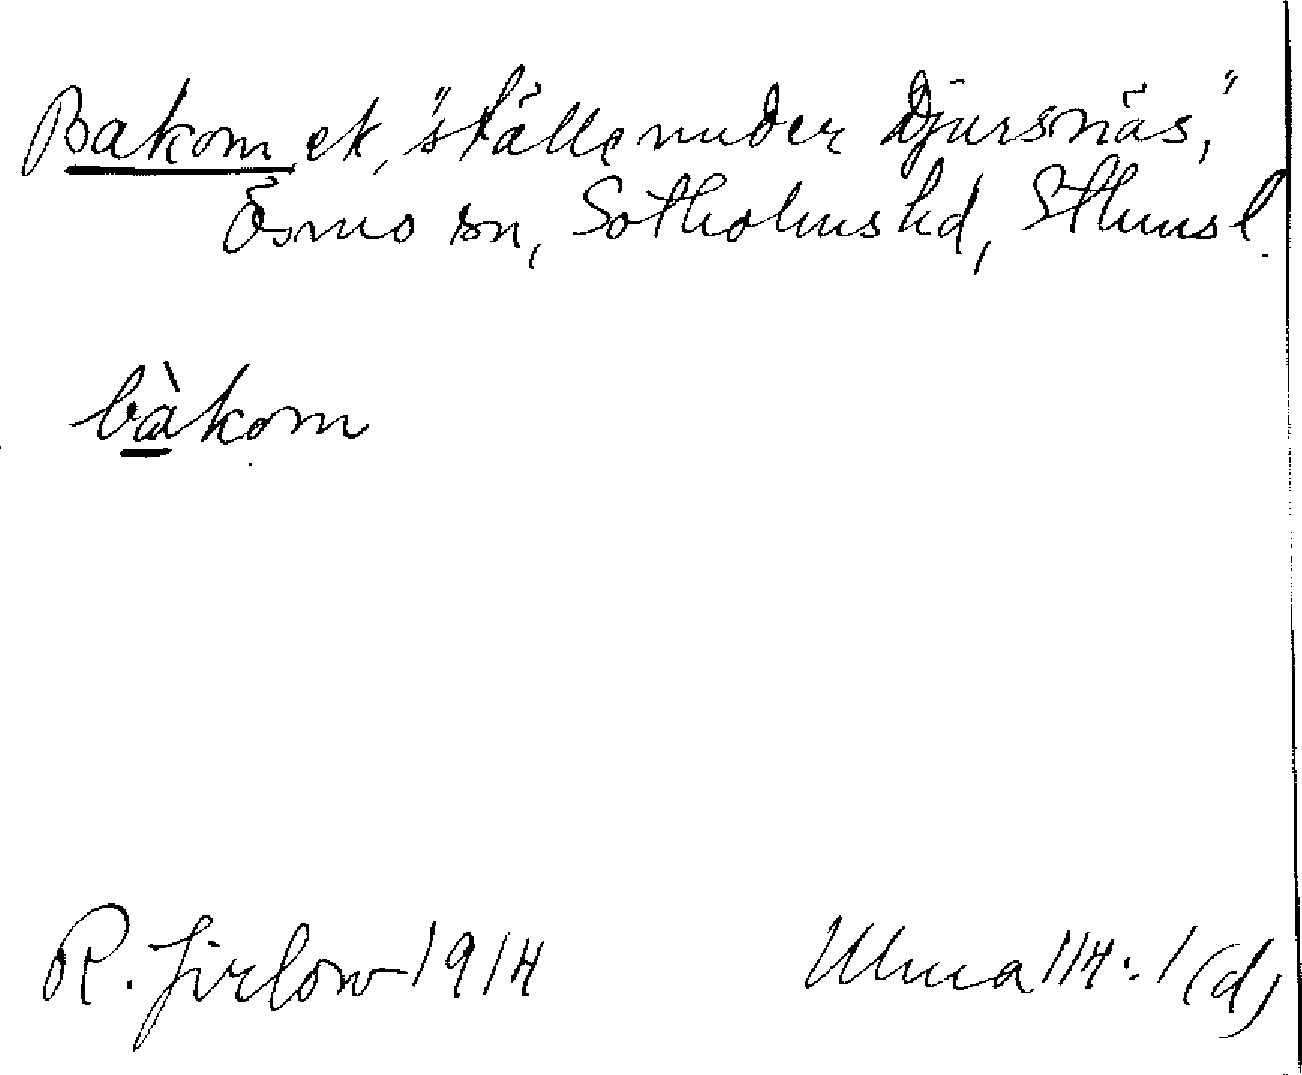 Bakom, ek, "ställe under Djursnäs,"
Ösmo sn, Sotholms hd, Sthmsl.
bàkom
R. Jirlow 1914
Ulma 114:1 (d)